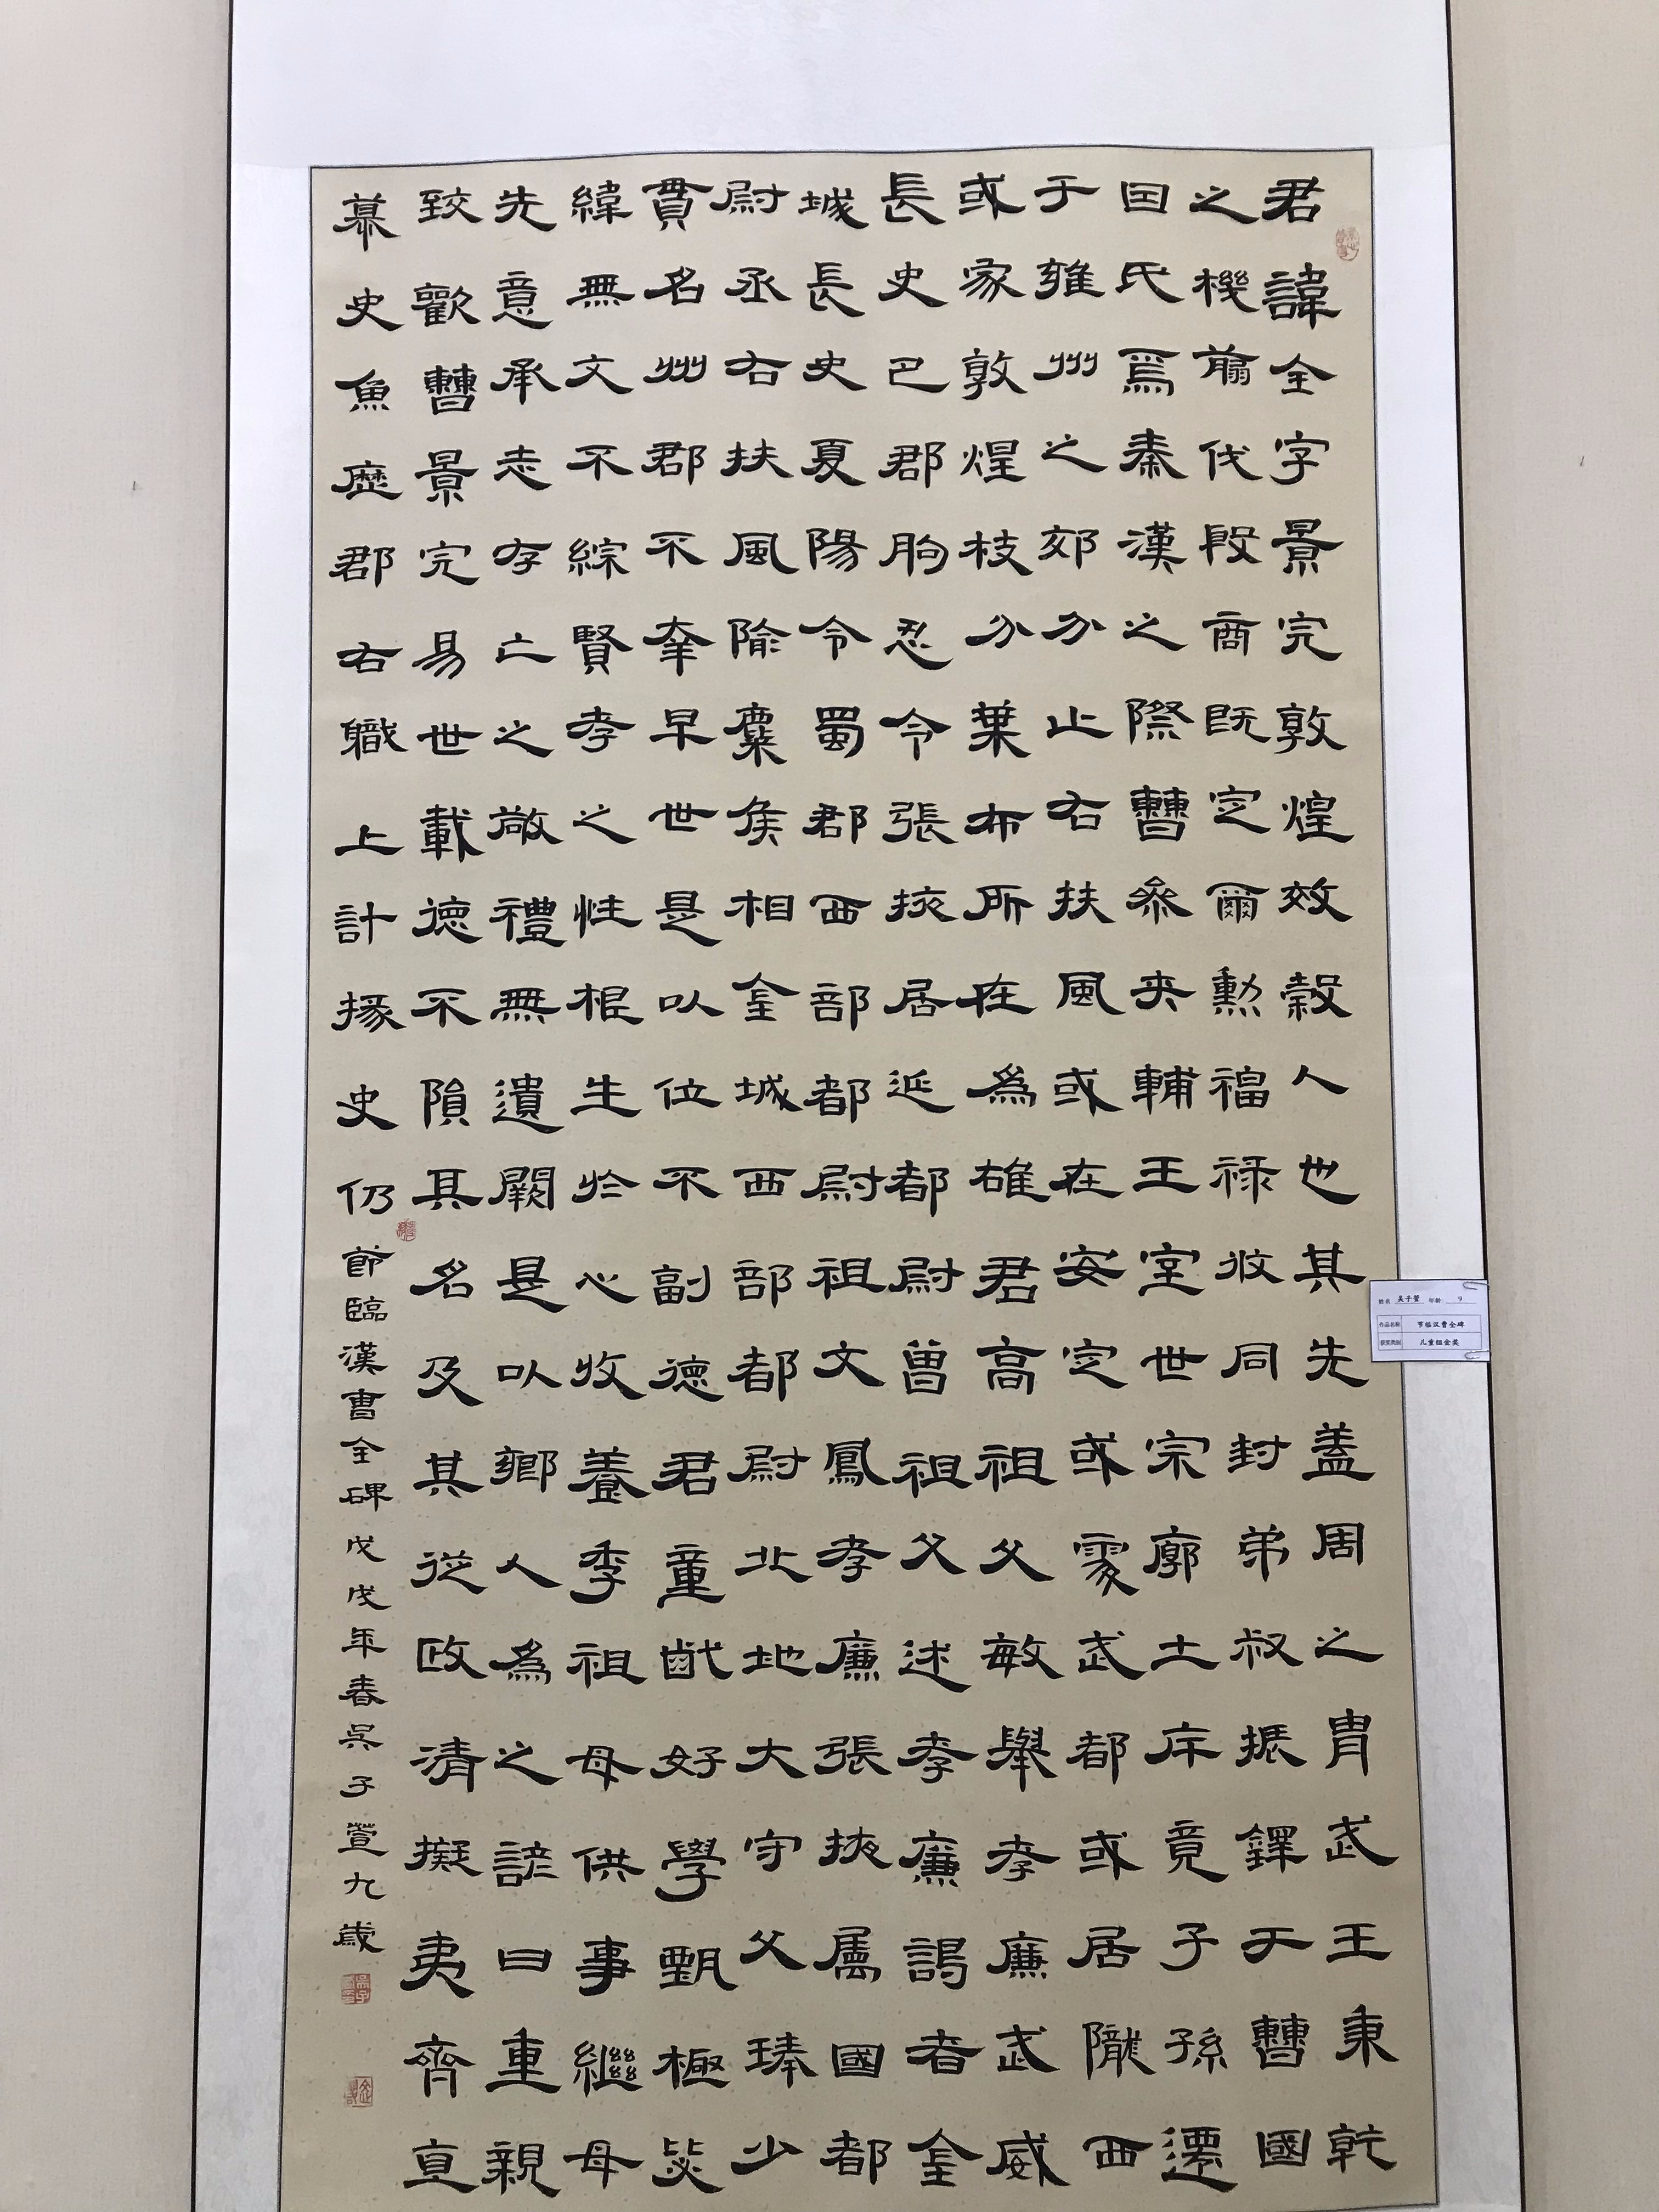 君諱全字景完敦煌效穀人也其先蓋周之胄武王秉乾
之機翦伐殷商既定爾勲福祿攸同封弟叔振鐸于曹國
因氏焉秦漢之際曹參夾輔王室世宗廓土斥竟子孫遷
于雍州之郊分止右扶風或在安定或處武都或居隴西
或家敦煌枝分葉布所在為雄君高祖父敏舉孝廉武威
長史巴郡朐忍令張掖居延都尉曾祖父述孝廉謁者金
城長史夏陽令蜀郡西部都尉祖文鳳孝廉張掖屬國都
尉丞右扶風隃麋侯相金城西部都尉北地大守父琫少
貫名州郡不幸早世是以位不副德君童齔好學甄極毖
緯無文不綜賢孝之性根生於心收養季祖母供事繼母
先意承志存亡之敬禮無遺闕是以鄉人為之諺曰重親
致歡曹景完易世載德不隕其名及其從政清擬夷齊直
慕史魚歷郡右職上計掾史仍
節臨漢曹全碑戊戌年春吳子萱九歲
姓名 吴子萱 年龄 9
作品名称 节临汉曹全碑
获奖类别 儿童组金奖